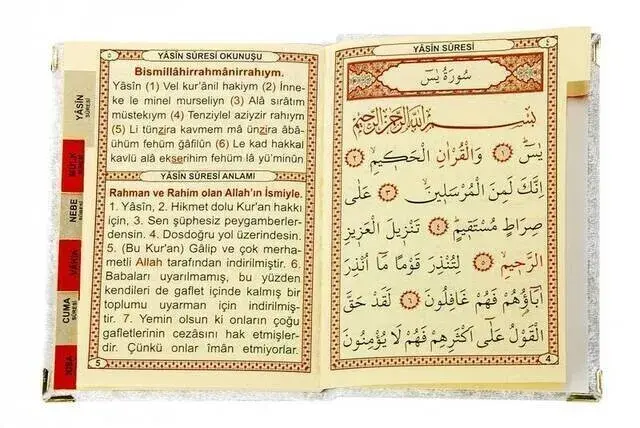 YÂSİN SÛRESİ
٤
سُورَةُ يٰسٓ
بِسْمِ اللّٰهِ الرَّحْمٰنِ الرَّحِيمِ
يٰسٓ ﴿١﴾ وَالْقُرْاٰنِ الْحَكِيمِ ﴿٢﴾
اِنَّكَ لَمِنَ الْمُرْسَلِينَ ﴿٣﴾ عَلٰى
صِرَاطٍ مُسْتَقِيمٍ ﴿٤﴾ تَنْزِيلَ الْعَزِيزِ
الرَّحِيمِ ﴿٥﴾ لِتُنْذِرَ قَوْمًا مَٓا اُنْذِرَ
اٰبَٓاؤُهُمْ فَهُمْ غَافِلُونَ ﴿٦﴾ لَقَدْ حَقَّ
الْقَوْلُ عَلٰٓى اَكْثَرِهِمْ فَهُمْ لَا يُؤْمِنُونَ
4
٥
YÂSİN SÛRESİ OKUNUŞU
Bismillâhirrahmânirrahıym.
Yâsîn (1) Vel kur'ânil hakiym (2) İnne-
ke le minel murseliyn (3) Alâ sırâtım
müstekıym (4) Tenziylel aziyzir rahıym
(5) Li tünzira kavmem mâ ünzira âbâ-
ühüm fehüm ğâfilûn (6) Le kad hakkal
kavlü alâ ekserihim fehüm lâ yü'minûn
YÂSİN SÛRESİ ANLAMI
Rahman ve Rahim olan Allah'ın İsmiyle.
1. Yâsîn, 2. Hikmet dolu Kur'an hakkı
için, 3. Sen şüphesiz peygamberler-
densin. 4. Dosdoğru yol üzerindesin.
5. (Bu Kur'an) Gâlip ve çok merha-
metli Allah tarafından indirilmiştir. 6.
Babaları uyarılmamış, bu yüzden
kendileri de gaflet içinde kalmış bir
toplumu uyarman için indirilmiş-
tir. 7. Yemin olsun ki onların çoğu
gafletlerinin cezasını hak etmişler-
dir. Çünkü onlar îmân etmiyorlar.
5
YÂSİN
SÛRESİ
MÜLK
NEBE
VAKIA
CUMA
SÛRESİ